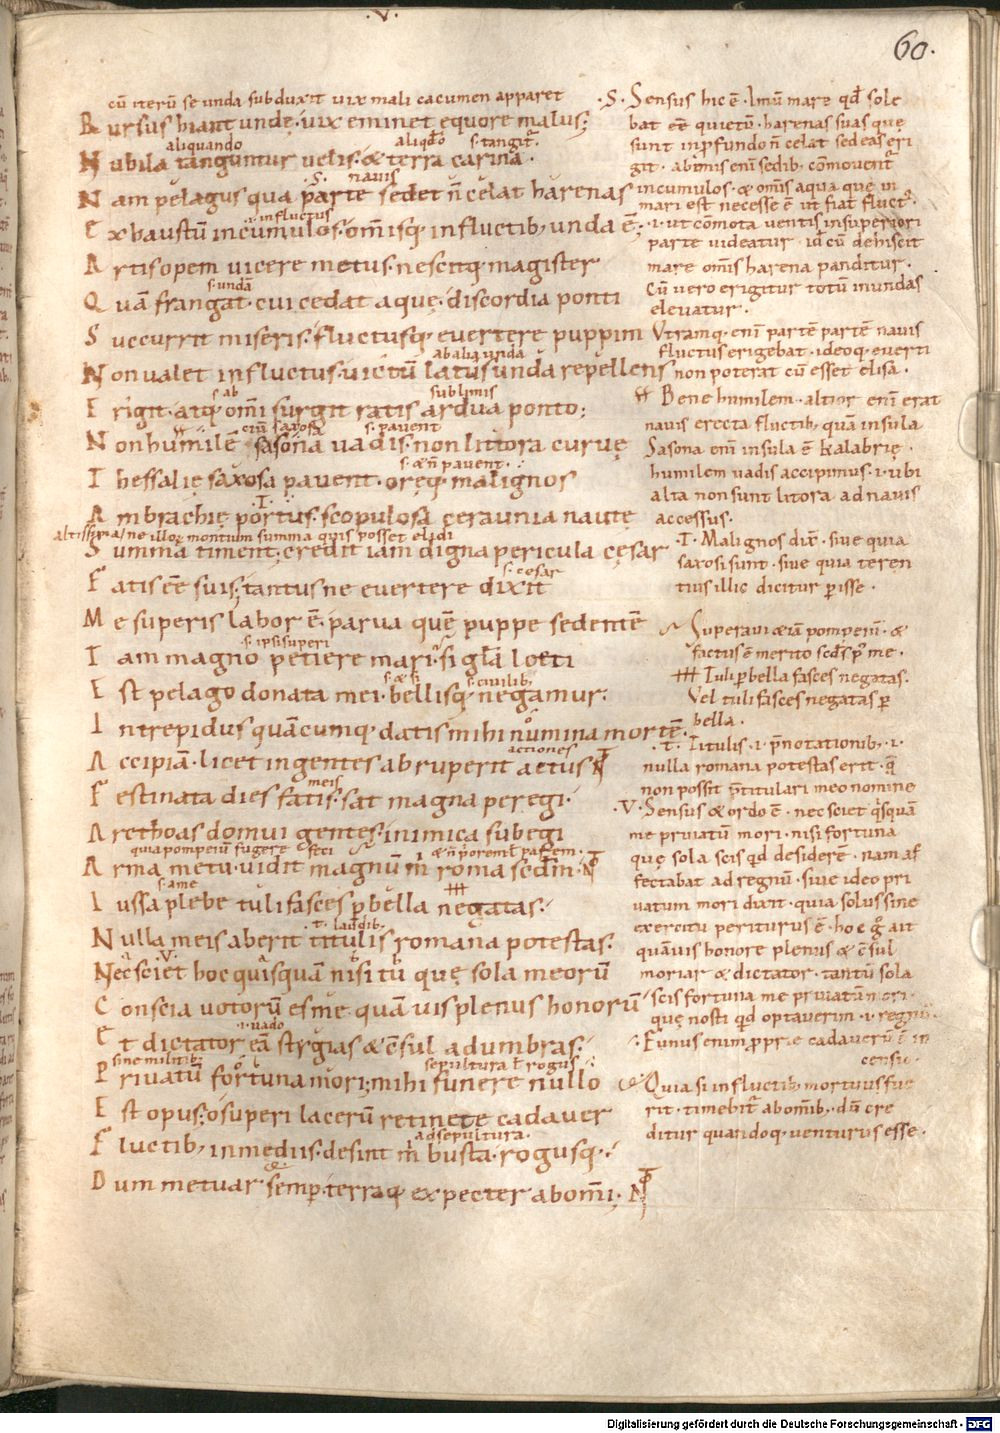 .V.
60.
cū iterū se unda subduxit uix mali cacumen apparet
Rursus hiant undę. uix eminet equore malus;
aliquando aliqdo s. tangit
Nubila tanguntur uelis. & terra carina.
.S. nauis
Nam pelagus qua parte sedet n̄ celat harenas
influctus
Exhaustū incumulos. omīsq; influctib; unda ē;
Artis opem uicere metus. nescitq; magister
s. undā
Quā frangat. cui cedat aquę. discordia ponti
Succurrit miseris. fluctusq; euertere puppim
ab alia unda
Non ualet influctus. uictū latus unda repellens
s. ab sublimis
Erigit. atq; omī surgit ratis ardua ponto;
s. pauent
Non humilē sasona uadis. non littora curuę
s. & n̄ pauent
Thessalię saxosa pauent. oręq; malignos
.T.
Ambrachię portus. scopulosa ceraunia nautę
ne illoꝝ montium summa quis posset elidi
Summa timent. credit iam digna pericula cęsar
s. cesar
Fatis eē suis; tantus ne euertere dixit
Me superis labor ē. parua quē puppe sedentē
s. ipsi superi
Tam magno petiere mari. si glā loeti
s. & si s. ciuilib;
Est pelago donata mei. bellisq; negamur.
Intrepidus quācumq; datis mihi numina mortē.
actiones
Accipiā. licet ingentes abruperit actus
meis
Festinata dies fatis. sat magna peregi.
Arcthoas domui gentes. inimica subegi
quia pompeiū fugere feci
Arma metu. uidit magnū m̄ roma scdm̄.
s. a me
Iussa plebe tuli fasces p bella negatas.
.t. laudib;
Nulla meis aberit titulis romana potestas.
.V.
Nec sciet hoc quisquā nisi tu quę sola meorū
Conscia uotorū es me quā uis plenus honorū
.i. uado
Et dictator eā stygias & c̄sul adumbras.
sine militib; sepultura ł rogus
Priuatū fortuna mori; mihi funere nullo
Est opus; o superi lacerū retinete cadauer
ad sepultura.
Fluctib; in mediis. desint m̄ busta. rogusq;
Dum metuar semp. terraq; expecter ab omī.
.S. Sensus hic ē. Imū mare qd sole
bat eē quietū. harenas suas quę
sunt in pfundo n̄ celat sed eas eri
git. ab imis enī sedib. cōmouent
incumulos. & omīs aqua quę in
mari est necesse ē ut fiat fluct.
.i. ut cōmota uentis in superiori
parte uideatur. id cū dehiscit
mare omīs harena panditur.
Cū uero erigitur totū in undas
eleuatur.
Utramq; enī partē partē nauis
fluctus erigebat. ideoq; euerti
non poterat cū esset elisa.
Bene humilem. altior enī erat
nauis erecta fluctib; quā insula
Sasona enī insula ē kalabrię.
humilem uadis accipimus. i. ubi
alta non sunt litora ad nauis
accessus.
.T. Malignos dix̄. siue quia
saxosi sunt. siue quia teren
tius illic dicitur pisse.
Superaui &iā pompeiū. &
factus ē merito scds p me.
Tuli p bella fasces negatas.
Vel tuli fasces negatas p
bella.
.t. Titulis. i. p̄notationib;. i.
nulla romana potestas erit. q̄
non possit p̄titulari meo nomine
.V. Sensus & ordo ē. nec sciet qsquā
me priuatū mori. nisi fortuna
quę sola scis qd desiderē. nam af
fectabat ad regnū. siue ideo pri
uatum mori dixit. quia solus sine
exercitu periturus ē. hoc g ait
quāuis honore plenus & c̄sul
moriar & dictator. tantū sola
scis fortuna me priuatū mori.
quę nosti qd optauerim. i. regnū
Funus enim proprie cadauerū ē in
censio.
Quia si in fluctib; mortuus fue
rit. timebit ab omib;. dn̄ cre
ditur quandoq; uenturus esse.
Digitalisierung gefördert durch die Deutsche Forschungsgemeinschaft - DFG